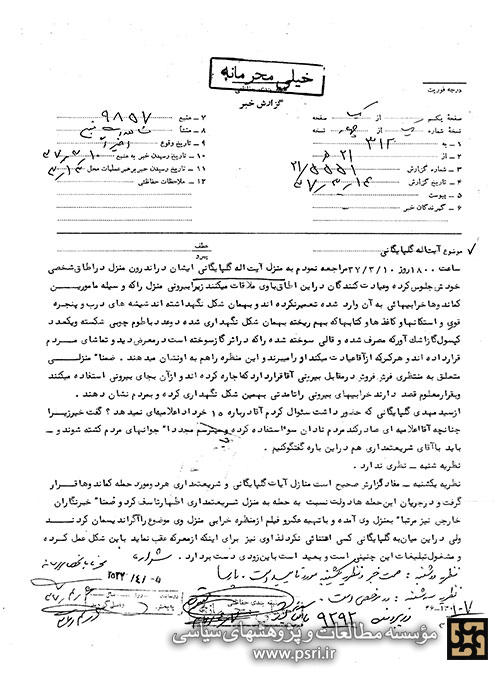 خیلی محرمانه
گزارش خبر
درجه فوریت
صفحه یکم از یک صفحه
نسخه شماره از نسخه
۱ - به ۳۱۲
۲ - از ۲۱ ه
۳ - شماره گزارش ۲۱/۵۵۵۱
۴ - تاریخ گزارش ۳۷/۳/۱۴
۵ - پیوست
۶ - گیرندگان خبر
۷ - منبع ۹۸۵۷
۸ - منشأ
۹ - تاریخ وقوع اخیراً
۱۰ - تاریخ رسیدن خبر به منبع ۳۷/۳/۱۰
۱۱ - تاریخ رسیدن خبر برهبر عملیات محل ۳۷/۳/۱۳
۱۲ - ملاحظات حفاظتی
موضوع آیت اله گلپایگانی
عطف
پیرو
ساعت ۱۸۰۰ روز ۳۷/۳/۱۰ مراجعه نمودم به منزل آیت اله گلپایگانی ایشان در اندرون منزل در اطاق شخصی
خودش جلوس کرده و عیادت کنندگان در این اطاق باوی ملاقات میکنند زیرا بیرونی منزل را که وسیله مامورین
کماندوها خرابیهائی به آن وارد شده تعمیر نکرده اند و بهمان شکل نگهداشته اند شیشه های درب و پنجره
قوری و استکانها و کاغذها و کتابها که بهم ریخته بهمان شکل نگهداری شده و عدد باطوم چوبی شکسته و یکعدد
کپسول گاز اشک آور که مصرف شده و قالی سوخته شده را که در اثر گاز سوخته است در معرض دید و تماشای مردم
قرار داده اند و هر کس که از آقا عیادت میکند او را میبرند و این منظره را هم به او نشان میدهند . ضمناً منزلی
متعلق به منتظری فرش فروش در مقابل بیرونی آقا قرار دارد که اجاره کرده اند و از آن بجای بیرونی استفاده میکنند
و بقرار معلوم قصد دارند خرابیهای بیرونی را تا مدتی بهمین شکل نگهداری کرده و بمردم نشان دهند .
از سید مهدی گلپایگانی که حضور داشت سئوال کردم آقا درباره ۱۵ خرداد اعلامیه ای نمیدهد ؟ گفت خیر زیرا
چنانچه آقا اعلامیه ای صادر کند مردم نادان سوء استفاده کرده و میترسم مجدداً جوانهای مردم کشته شوند و
باید با آقای شریعتمداری هم در این باره گفتگو کنیم .
نظریه شنبه - نظری ندارد .
نظریه یکشنبه - مفاد گزارش صحیح است منازل آیات گلپایگانی و شریعتمداری هر دو مورد حمله کماندوها قرار
گرفت و در جریان این حمله ها دولت نسبت به حمله به منزل شریعتمداری اظهار تأسف کرد و ضمناً خبرنگاران
خارجی نیز مرتباً بمنزل وی آمده و با تهیه عکس و فیلم از منظره خرابی منزل وی موضوع را آگراندیسمان کردند
ولی در این میان به گلپایگانی کسی اعتنائی نکرد لذا وی نیز برای اینکه از معرکه عقب نماند باین شکل عمل کرده
و مشغول تبلیغات این چنینی است و بعید است باین زودی دست بردارد .
نظریه دوشنبه : صحت خبر و نظریه یکشنبه مورد تایید است . پارسا
نظریه سه شنبه : در مرخصی است .
۹۲۹۲
طبقه بندی حفاظتی
مؤسسه مطالعات و پژوهشهای سیاسی
www.psri.ir